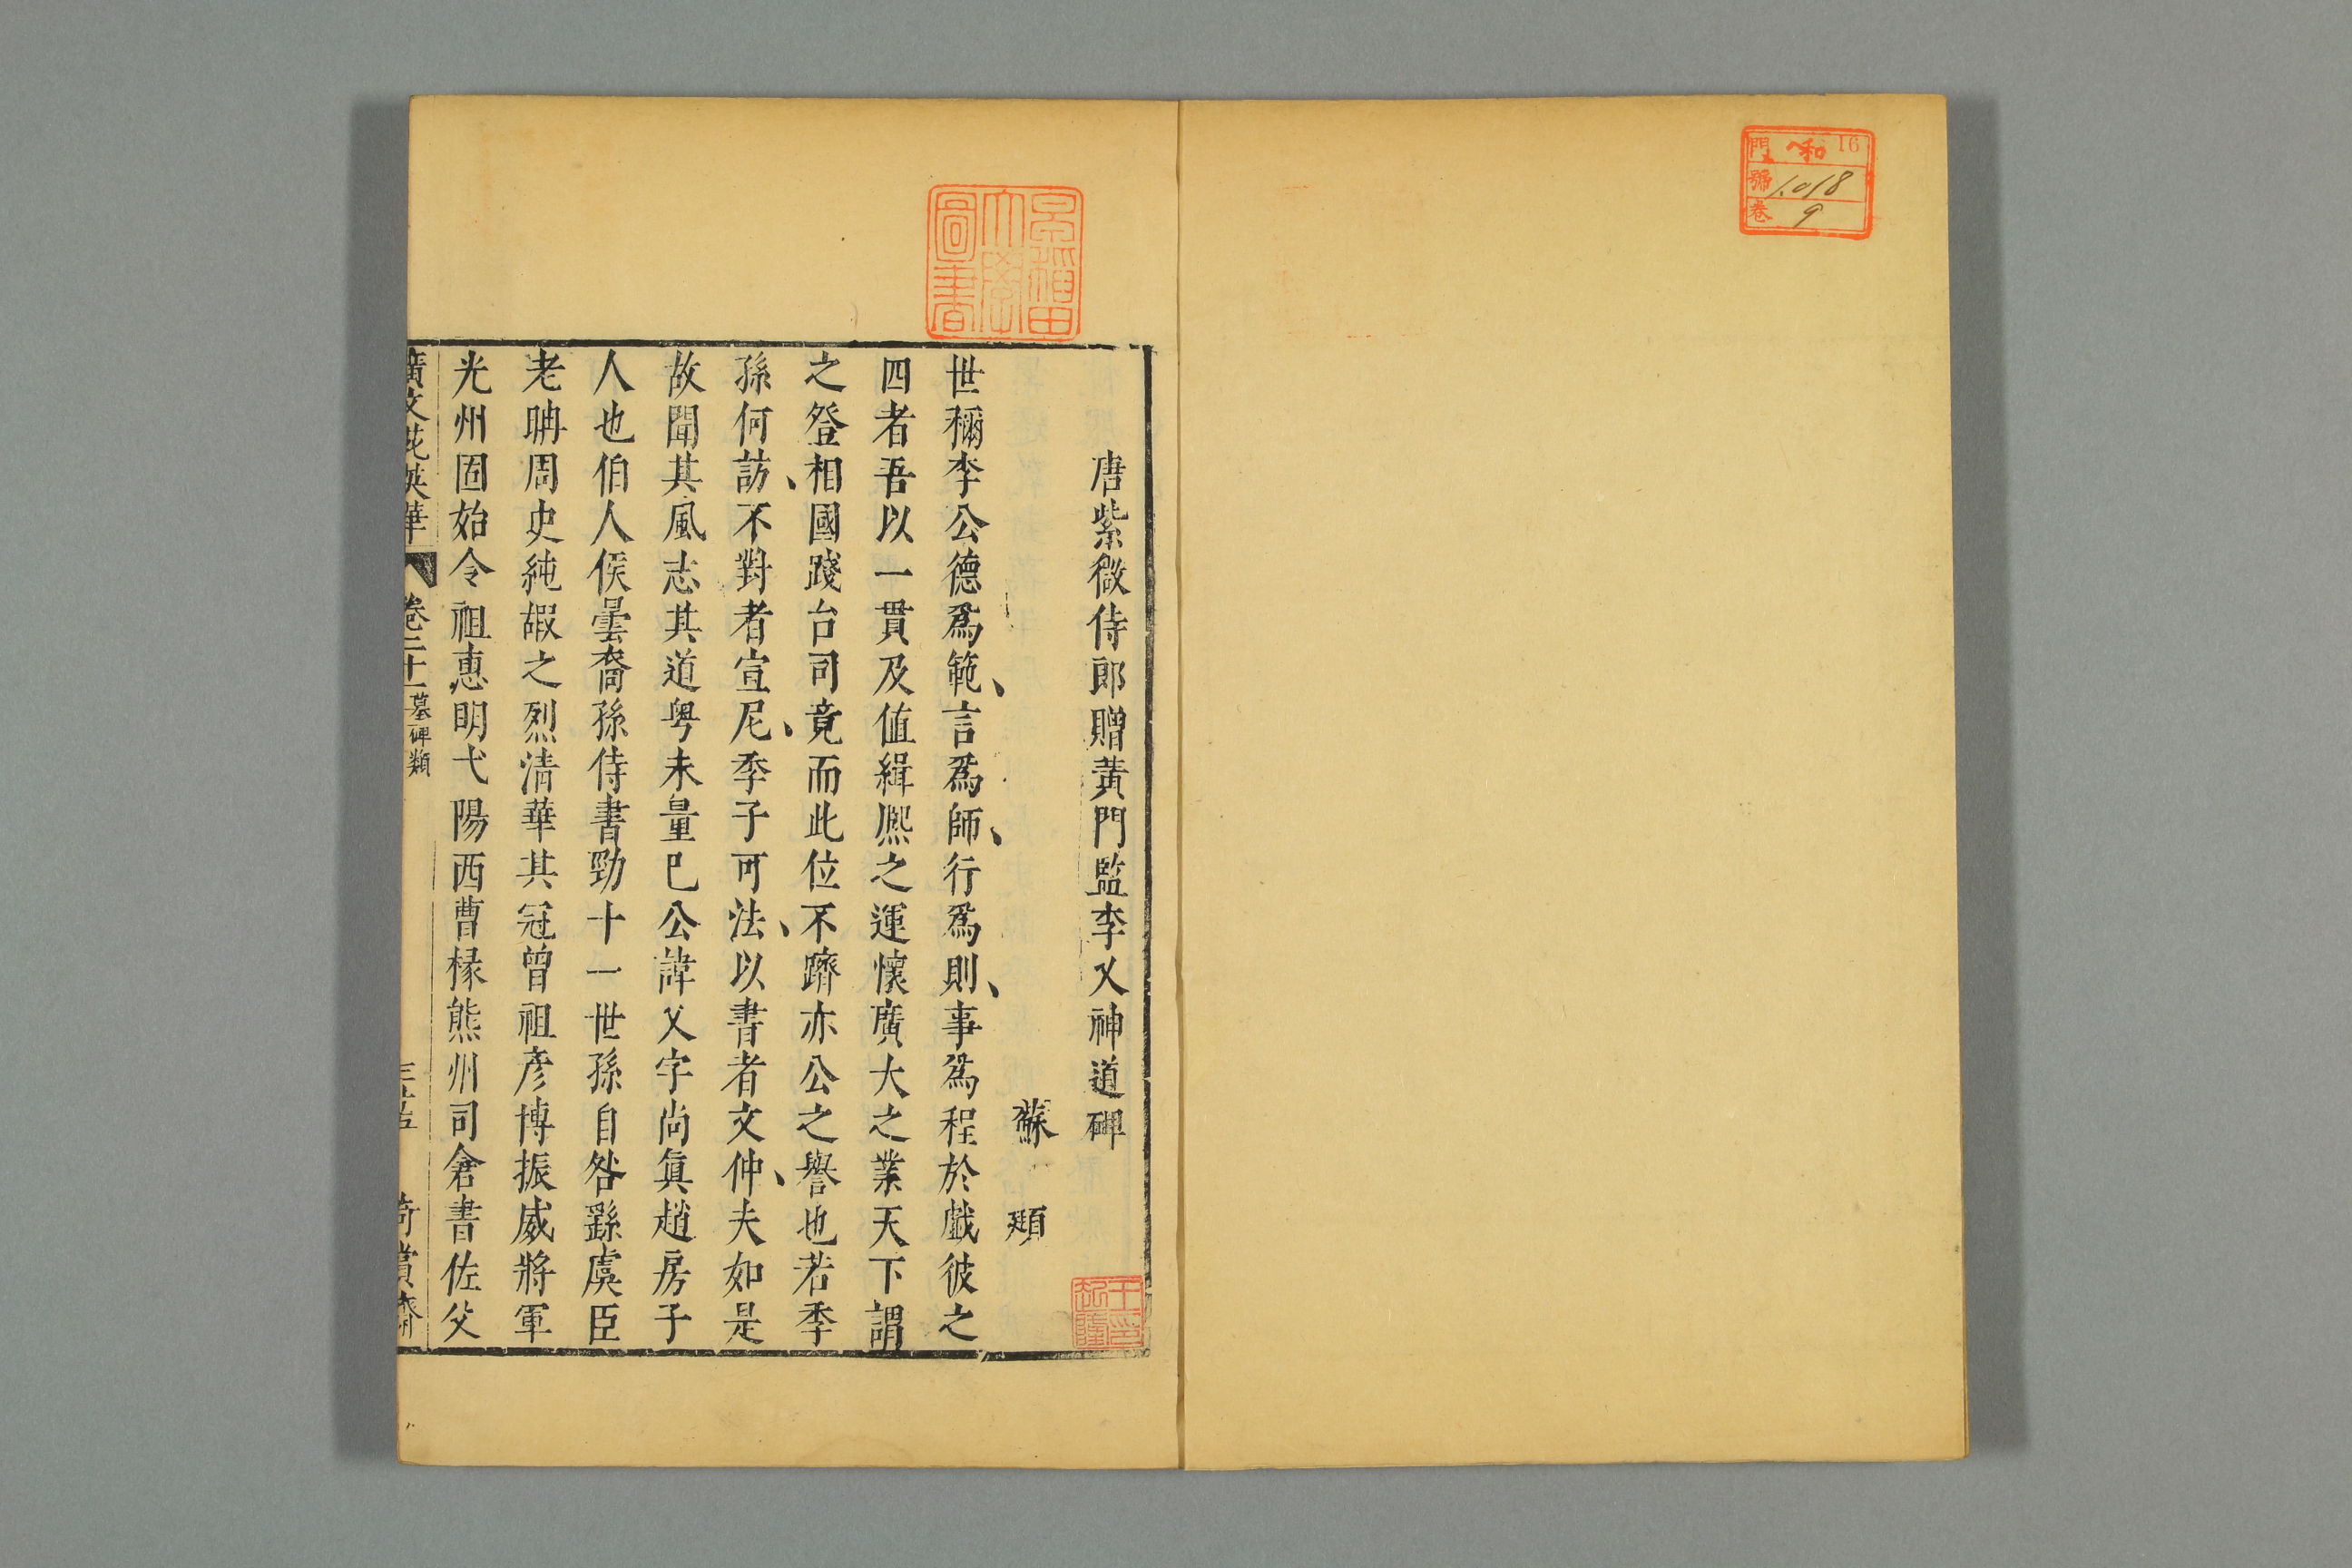 門 和 16
號 1.018
卷 9
早稻田大學圖書
唐紫微侍郎贈黃門監李乂神道碑
蘇頲
王印
世稱李公德爲範、言爲師、行爲則、事爲程於戲彼之
四者吾以一貫及值緝熈之運懷廣大之業天下謂
之登相國踐台司竟而此位不躋亦公之譽也若季
孫何訪、不對者宣尼、季子可法、以書者文仲、夫如是
故聞其風志其道粤未量巳公諱乂字尚眞趙房子
人也伯人侯曇裔孫侍書勁十一世孫自咎繇虞臣
老聃周史純嘏之烈清華其冠曾祖彦博振威將軍
光州固始令祖惠明弋陽西曹椽熊州司倉書佐父
廣文苑英華 卷二十一 墓碑類